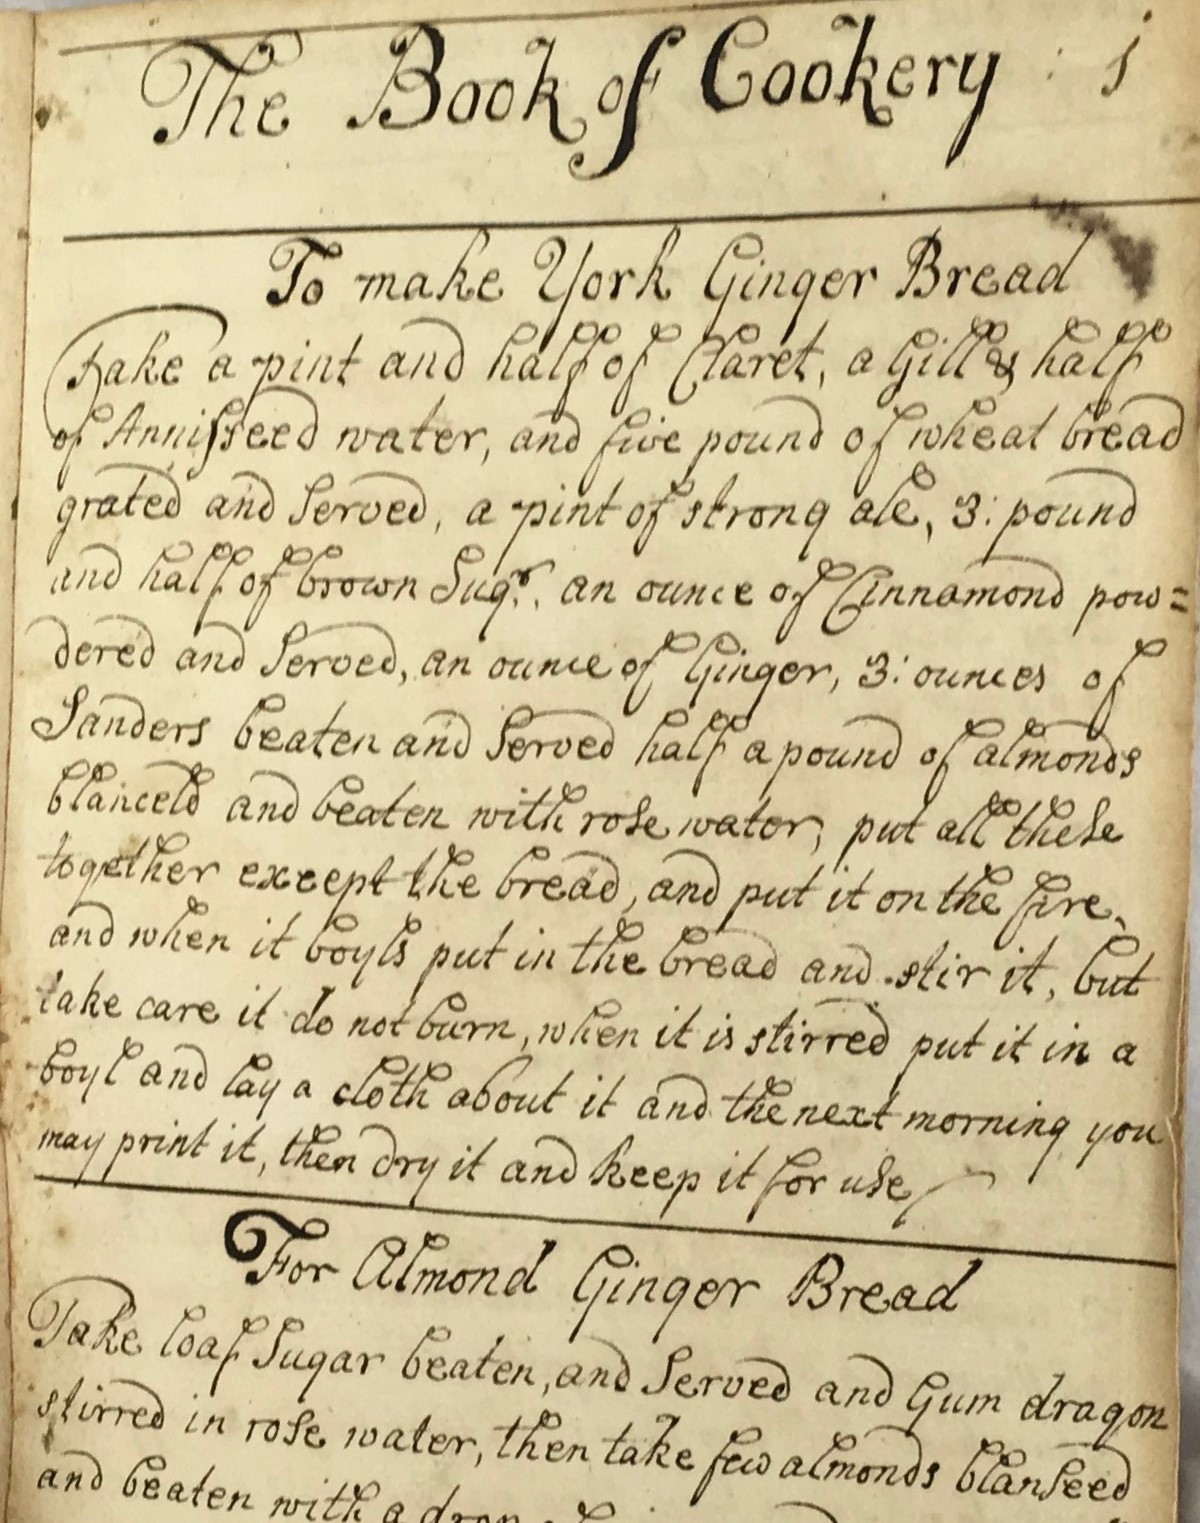 The Book of Cookery : 1
To make York Ginger Bread
Take a pint and half of Claret, a Gill & half
of Annisseed water, and five pound of wheat bread
grated and Served, a pint of strong ale, 3: pound
and half of brown Sugr. an ounce of Cinnamond pow=
dered and Serced, an ounce of Ginger, 3: ounces of
Sanders beaten and Serced half a pound of almonds
blanceld and beaten with rose water, put all these
together except the bread, and put it on the fire,
and when it boyls put in the bread and stir it, but
take care it do not burn, when it is stirred put it in a
boyl and lay a cloth about it and the next morning you
may print it, then dry it and keep it for use
For Almond Ginger Bread
Take loaf Sugar beaten, and Serced and Gum dragon
stirred in rose water, then take few almonds blanseed
and beaten with a drop